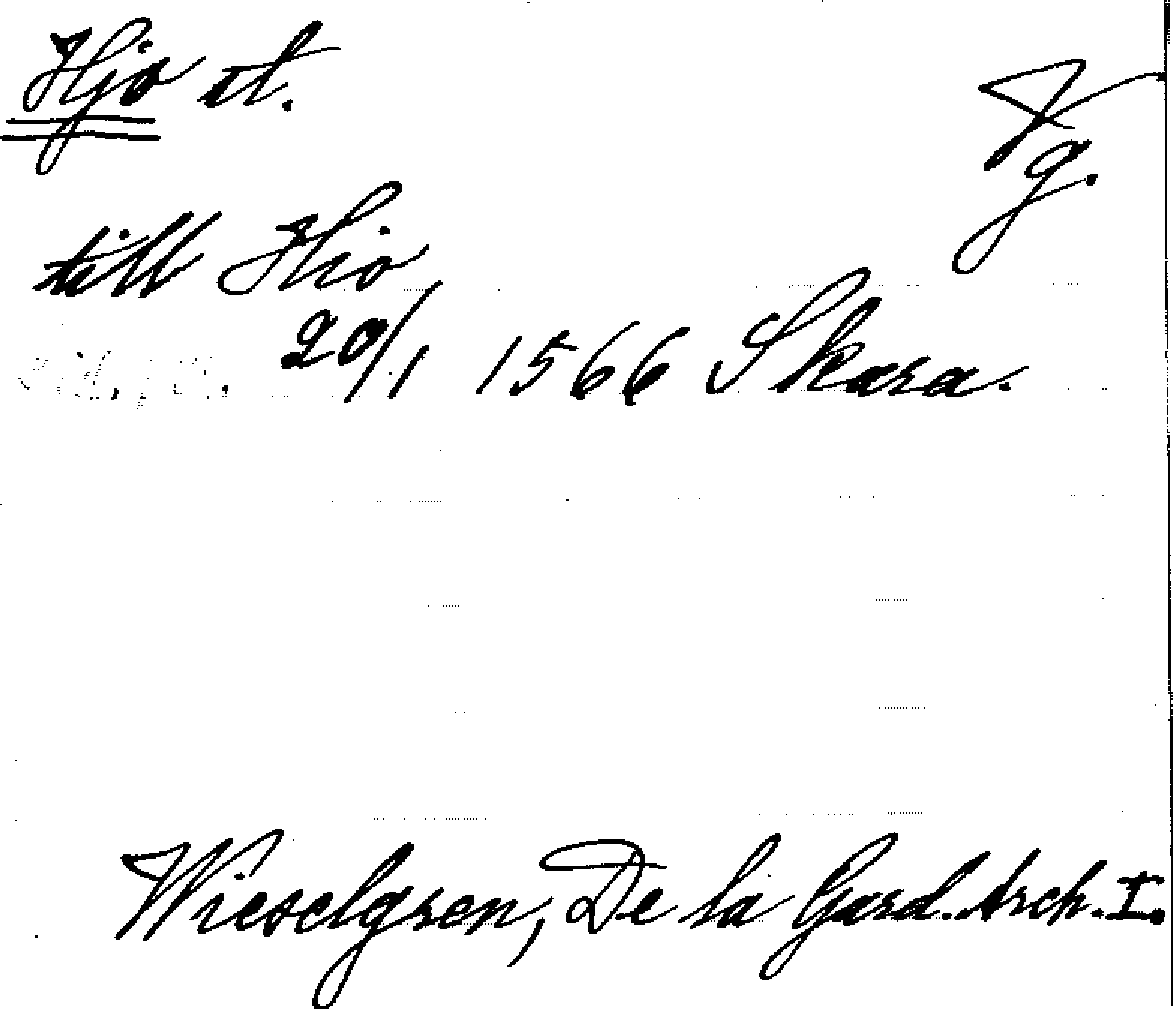 Hjo st.
Vg.
till Hio
20/1 1566 Skara.
Wieselgren, De la Gard. Arch. I.